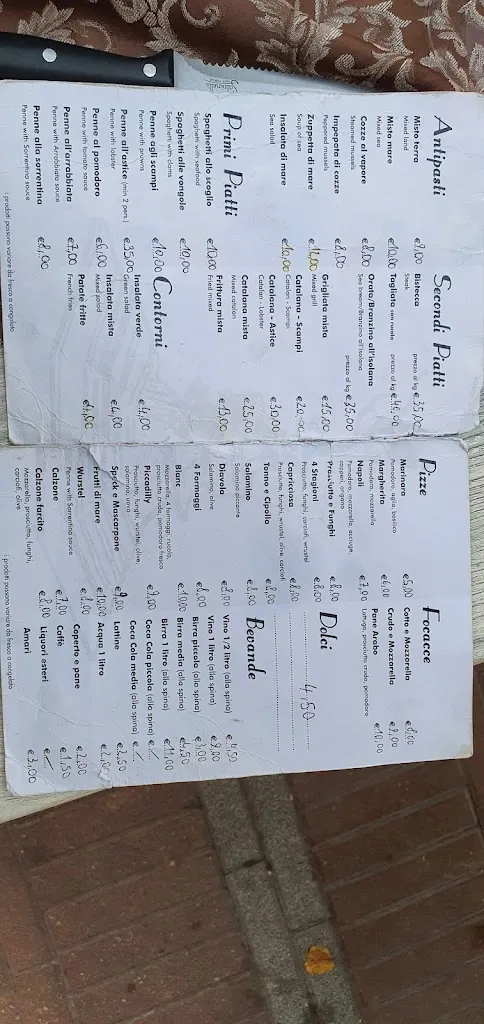 Antipasti
Misto terra €9,00
Mixed land
Misto mare €10,00
Mixed sea
Cozze al vapore €8,00
Steamed mussels
Impepata di cozze €8,00
Peppered mussels
Zuppetta di mare €12,00
Soup of sea
Insalata di mare €10,00
Sea salad
Primi Piatti
Spaghetti allo scoglio €10,00
Spaghetti with seafood
Spaghetti alle vongole €10,00
Spaghetti with clams
Penne agli scampi €10,00
Penne with prawns
Penne all'astice (min 2 pers.) €35,00
Penne with lobster
Penne al pomodoro €6,00
Penne with tomato sauce
Penne all'arrabbiata €7,00
Penne with Arrabbiata sauce
Penne alla sorrentina €8,00
Penne with Sorrentina sauce
i prodotti possono variare da fresco a congelato
Secondi Piatti
Bistecca prezzo al kg €35,00
Steak
Tagliata con rucola prezzo al kg €40,00
Orata/Branzino all'isolana
Sea bream/Branzino all'isolana prezzo al kg €35,00
Grigliata mista €15,00
Mixed grill
Catalana - Scampi €20,00
Catalan - Scampi
Catalana - Astice €30,00
Catalan - Lobster
Catalana mista €25,00
Mixed catalan
Frittura mista €13,00
Fried mixed
Contorni
Insalata verde €4,00
Green salad
Insalata mista €4,00
Mixed salad
Patate fritte €4,00
French fries
Pizze
Marinara €5,00
Pomodoro, aglio, basilico
Margherita €6,00
Pomodoro, mozzarella
Napoli €7,00
Pomodoro, mozzarella, acciughe,
capperi, origano
Prosciutto e Funghi €8,00
4 Stagioni €8,00
Prosciutto, funghi, carciofi, wrustel
Capricciosa €8,00
Prosciutto, funghi, wrustel, olive, carciofi
Tonno e Cipolla €8,00
Salamino €8,00
Salamino piccante
Diavola €8,00
Salamino, olive
4 Formaggi €8,00
Blanc €10,00
Mozzarella, 4 formaggi, rucola,
prosciutto crudo, pomodoro fresco
Piccadilly €9,00
Prosciutto, funghi, wurstel, olive,
salamino, carciofi
Speck e Mascarpone €9,00
Frutti di mare €10,00
Wurstel €8,00
Penne with Sorrentina sauce
Calzone €7,00
Calzone farcito €8,00
Mozzarella, prosciutto, funghi,
carciofi, olive
i prodotti possono variare da fresco a congelato
Focacce
Cotto e Mozzarella €8,00
Crudo e Mozzarella €9,00
Pane Arabo €10,00
Lattuga, prosciutto crudo, pomodoro
Dolci
4,50
Bevande
Vino 1/2 litro (alla spina) €4,50
Vino 1 litro (alla spina) €9,00
Birra piccola (alla spina) €3,00
Birra media (alla spina) €4,50
Birra 1 litro (alla spina) €11,00
Coca Cola piccola (alla spina) €
Coca Cola media (alla spina) €
Lattine €2,50
Acqua 1 litro €2,00
Coperto e pane €2,00
Caffè €1,50
Liquori esteri €
Amari €3,00